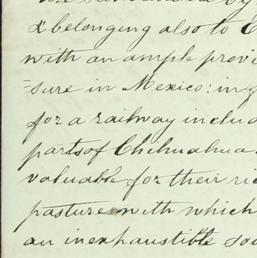 & belonging also to
with an ample provi
=sure in Mexico: in
for a railway includ
parts of Chihuahua
valuable for their ri
pasture with which
an inexhaustible sou